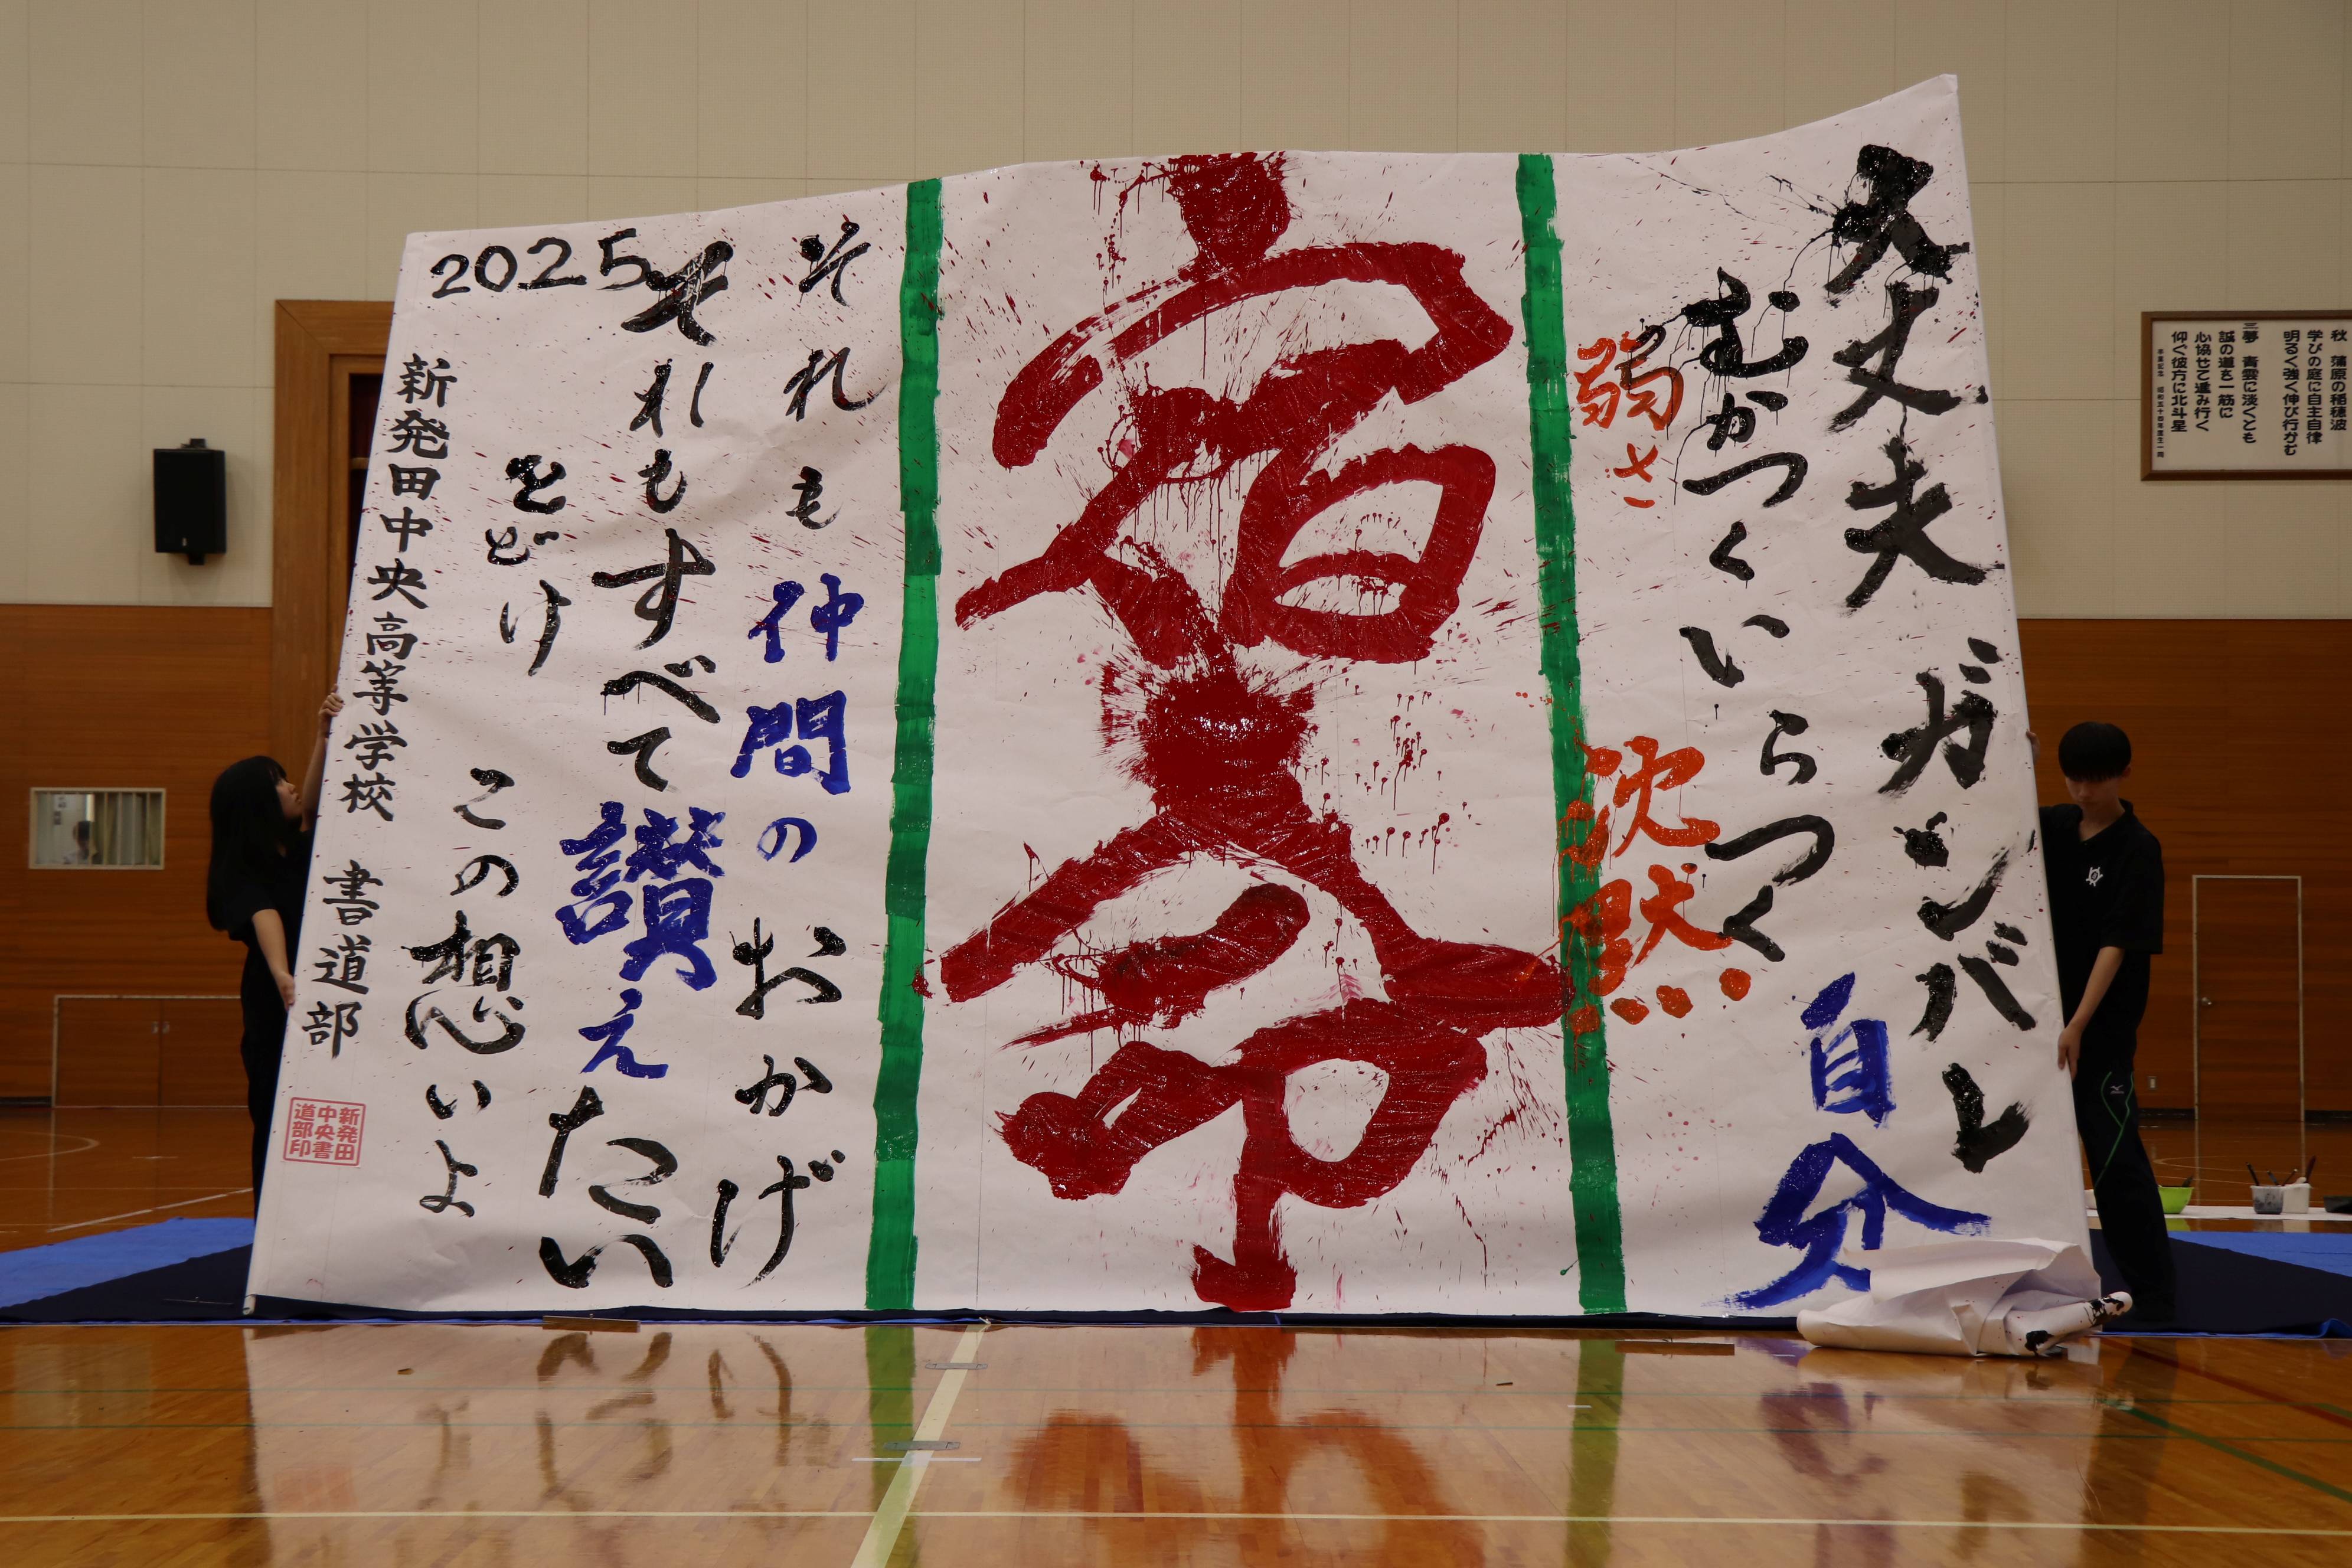 大丈夫 ガンバレ 自分
むかつく いらつく
弱さ 沈黙
宿命
それも 仲間の おかげ
それもすべて讃えたい
とどけ この想いよ
2025
新発田中央高等学校 書道部
新発田
中央書
道部印
秋 蒲原の稲穂波
学びの庭に自主自律
明るく強く伸び行かむ
三 夢 青雲に淡くとも
誠の道を一筋に
心協せて進み行く
仰ぐ彼方に北斗星